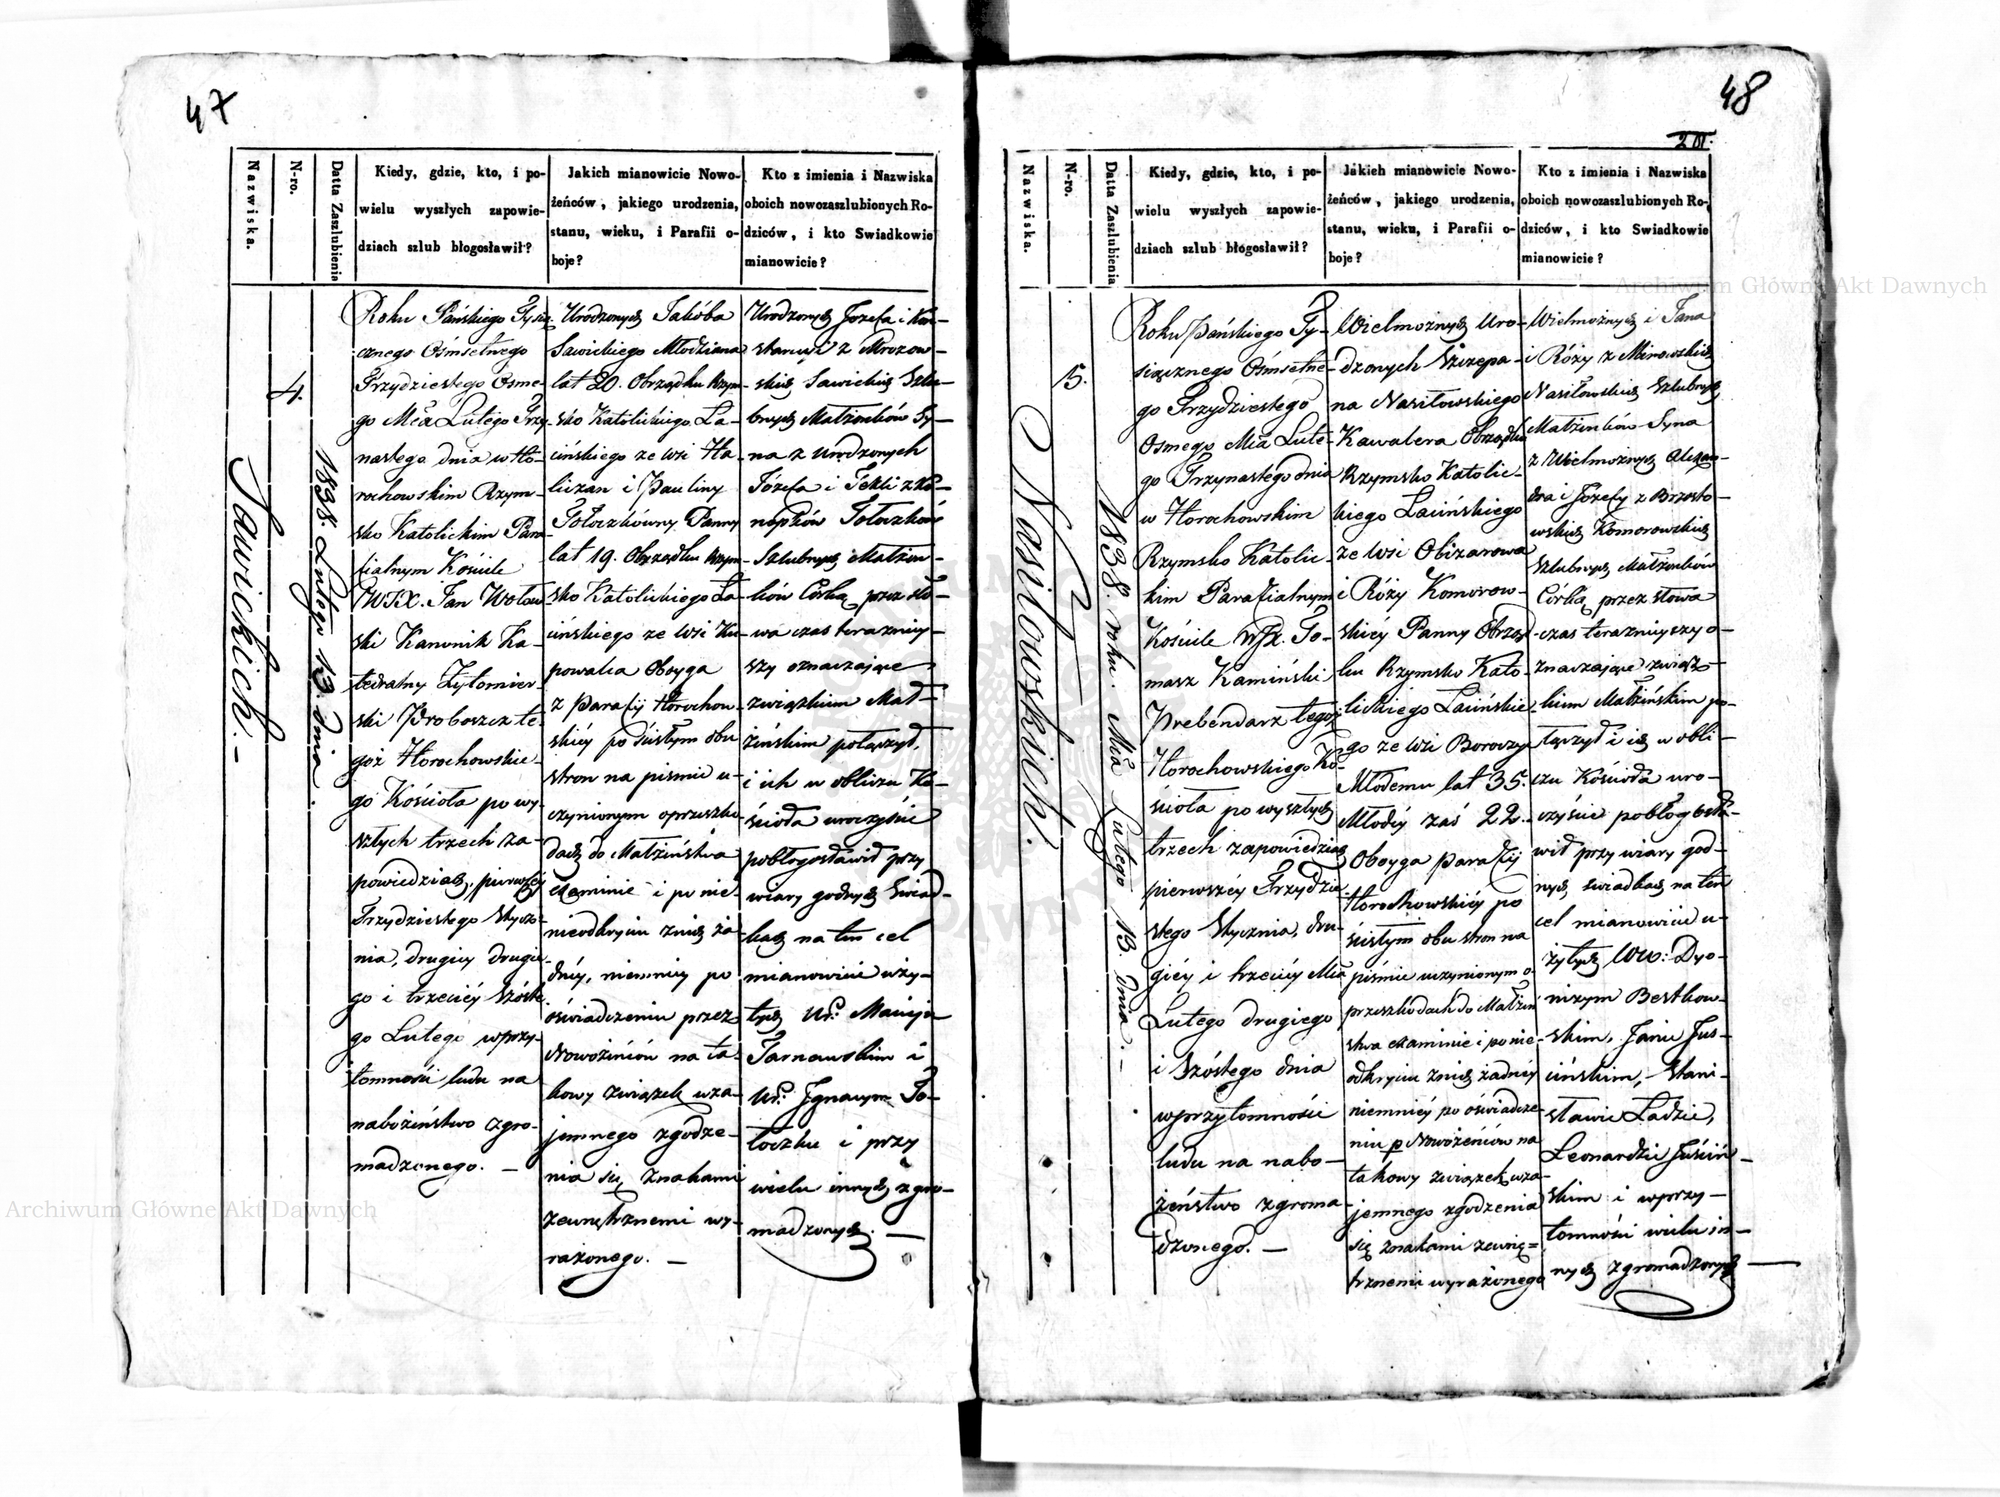 47
Nazwiska.
N-ro.
Datta Zaszlubienia
Kiedy, gdzie, kto, i po-
wielu wyszłych zapowie-
dziach szlub błogosławił?
Jakich mianowicie Nowo-
żeńców, jakiego urodzenia,
stanu, wieku, i Parafii o-
boje?
Kto z imienia i Nazwiska
oboich nowozaszlubionych Ro-
dziców, i kto Swiadkowie
mianowicie?
Sawickich.-
4.
1838. Lutego 13. dnia.
Roku Pańskiego Tysią
cznego Ośmsetnego
Trzydziestego Osme-
go Mca Lutego Trzy-
nastego dnia w Ho-
rochowskim Rzym-
sko Katolickim Para
fialnym Kościele
WJX. Jan Wołow
ski Kanonik Ka-
tedralny Żytomier-
ski Proboszcz te-
goż Horochowskie-
go Kościoła po wy-
szłych trzech za-
powiedziach, pierwszej
Trzydziestego Stycz-
nia, drugiey drugie-
go i trzeciéy Szóste
go Lutego w przy-
tomności ludu na
nabożeństwo zgro-
madzonego. —
Urodzonych Jakóba
Sawickiego Młodziana
lat 20. Obrządku Rzym-
sko Katolickiego Ła-
cińskiego ze Wsi Ha-
liczan i Pauliny
Tołoczkówny Panny
lat 19. Obrządku Rzym-
sko Katolickiego Ła-
cińskiego ze Wsi Ku-
powalca Oboyga
z Parafij Horochow-
skiéy po ścisłym obu
stron na piśmie u-
czynionym o przeszko-
dach do Małżeństwa
examinie i po nie-
nieodkryciu żnich ża-
dnéy, niemniey po
oświadczeniu przez
Nowożeńców na ta-
kowy związek wza-
jemnego zgodze-
nia się znakami
zewnętrznemi wy-
rażonego. —
Urodzonych Józefa i Kon-
stancyi z Mrozow-
skich Sawickich Szlu-
bnych Małżonków Sy-
na z urodzonych
Józefa i Tekli z Ko-
nopków Tołoczków
Szlubnych Małżon-
ków Córką przez sło-
wa czas terazniey-
szy oznaczające
związkiem Mał-
żeńskim połączył,
i ich w obliczu Ko-
ścioła uroczyście
pobłogosławił przy
wiary godnych Świad-
kach na ten cel
mianowicie uży-
tych Ur: Macieju
Tarnawskim i
Ur: Ignacym To-
łoczku i przy
wielu innych zgro-
madzonych. —
48
Nazwiska.
N-ro.
Datta Zaszlubienia
Kiedy, gdzie, kto, i po-
wielu wyszłych zapowie-
dziach szlub błogosławił?
Jakich mianowicie Nowo-
żeńców, jakiego urodzenia,
stanu, wieku, i Parafii o-
boje?
Kto z imienia i Nazwiska
oboich nowozaszlubionych Ro-
dziców, i kto Swiadkowie
mianowicie?
Nasiłowskich.
5.
1838. roku. Mca Lutego 13. dnia. -
Roku Pańskiego Ty-
siącznego Ośmsetne-
go Trzydziestego
Osmego Mca Lute-
go Trzynastego dnia
w Horochowskim
Rzymsko Katolic-
kim Parafialnym
Kościele WJX. To-
masz Kamiński
Prebendarz tegoż
Horochowskiego Ko-
ścioła po wyszłych
trzech zapowiedziach
pierwszéy Trzydzie-
stego Stycznia, dru-
giéy i trzeciéy Mca
Lutego drugiego
i Szóstego dnia
w przytomności
ludu na nabo-
żeństwo zgroma-
dzonego. —
Wielmożnych Uro-
dzonych Szczepa-
na Nasiłowskiego
Kawalera Obrządku
Rzymsko Katolic-
kiego Łacińskiego
ze Wsi Obżarowa
i Róży Komorow-
skiéy Panny Obrząd
ku Rzymsko Kato-
lickiego Łacińskie-
go ze Wsi Boroczy
Młodemu lat 35.
Młodéy zaś 22.
Oboyga parafij
Horochowskiéy po
ścisłym obu stron na
piśmie uczynionym o
przeszkodach do Małżeń
stwa examinie i po nie-
odkryciu żnich żadnéy
niemniéy po oświadcze-
niu p Nowożeńców na
takowy związek wza-
jemnego zgodzenia
się znakami zewnę=
trznemi wyrażonego
Wielmożnych i Jana
i Róży z Minowskich
Nasiłowskich Szlubnych
Małżonków Syna
z Wielmożnych Alexan-
dra i Józefy z Brzosto-
wskich Komorowskich
Szlubnych Małżonków
Córką przez słowa
czas teraznieyszy o-
znaczające związ-
kiem Małżeńskim po-
łączył i ich w obli-
czu Kościoła uro-
czyście pobłogosła-
wił przy wiary god-
nych, świadkach na ten
cel mianowicie u-
żytych WW: Dyo-
nizym Bestkow-
skim, Janie Jus-
cińskim, Stani-
sławie Ładzie,
Leonardzie Juściń-
skim i w przy-
tomności wielu in-
nych zgromadzonych —
Archiwum Główne Akt Dawnych
Archiwum Główne Akt Dawnych